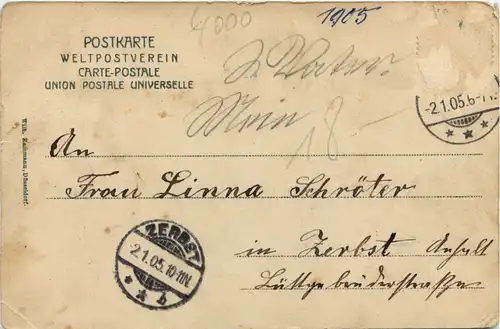 4000
1905
POSTKARTE
WELTPOSTVEREIN
CARTE-POSTALE
UNION POSTALE UNIVERSELLE
Vater
18
-2.1.05.6-7
An
Frau Linna Schröter
in Zerbst Anhalt
Lüttgebrüderstraße
ZERBST
2.1.05.10-11N.
b
Wilh. Düsseldorf.